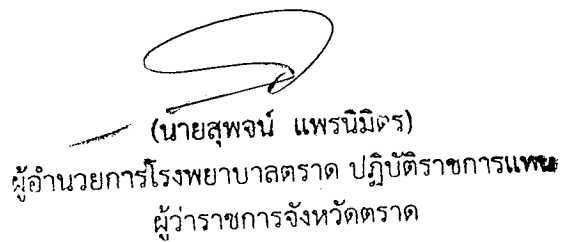 (นายสุพจน์ แพรนิมิตร)
ผู้อำนวยการโรงพยาบาลตราด ปฏิบัติราชการแทน
ผู้ว่าราชการจังหวัดตราด